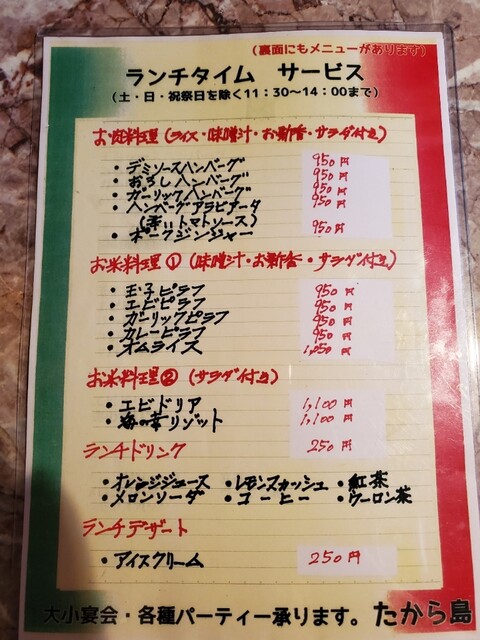 (裏面にもメニューがあります)
ランチタイム サービス
(土・日・祝祭日を除く11:30~14:00まで)
お肉料理(ライス・味噌汁・お新香・サラダ付き)
・デミソースハンバーグ 950円
・おろしハンバーグ 950円
・ガーリックハンバーグ 950円
・ハンバーグアラビアータ 950円
(辛いトマトソース)
・ポークジンジャー 950円
お米料理①(味噌汁・お新香・サラダ付き)
・玉子ピラフ 950円
・エビピラフ 950円
・ガーリックピラフ 950円
・カレーピラフ 950円
・オムライス 1,050円
お米料理②(サラダ付き)
・エビドリア 1,100円
・海の幸リゾット 1,100円
ランチドリンク 250円
・オレンジジュース ・レモンスカッシュ ・紅茶
・メロンソーダ ・コーヒー ・ウーロン茶
ランチデザート
・アイスクリーム 250円
大小宴会・各種パーティー承ります。たから島